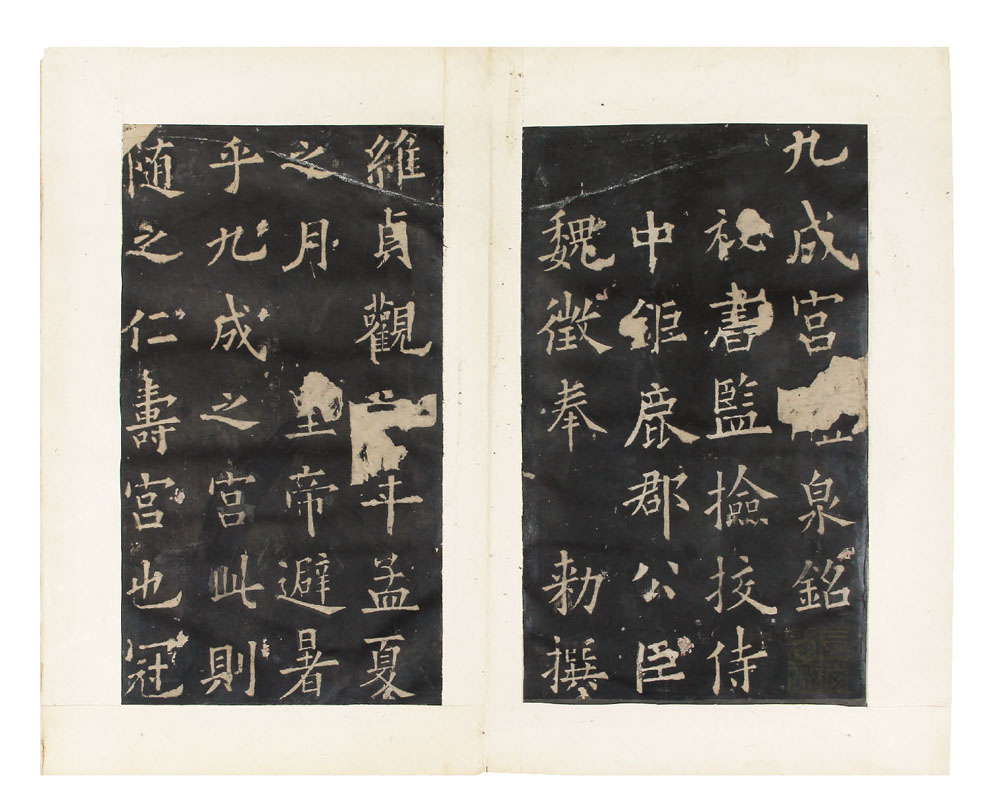 九成宮泉銘
秘書監撿挍侍
中鉅鹿郡公臣
魏徵奉
勑撰
維貞觀年孟夏
之月
皇帝避暑
乎九成之宮此則
随之仁壽宮也冠